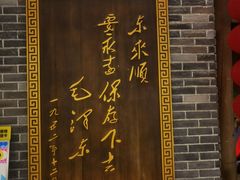 东来顺
要永远
保存下去
毛泽东
一九五二年十二